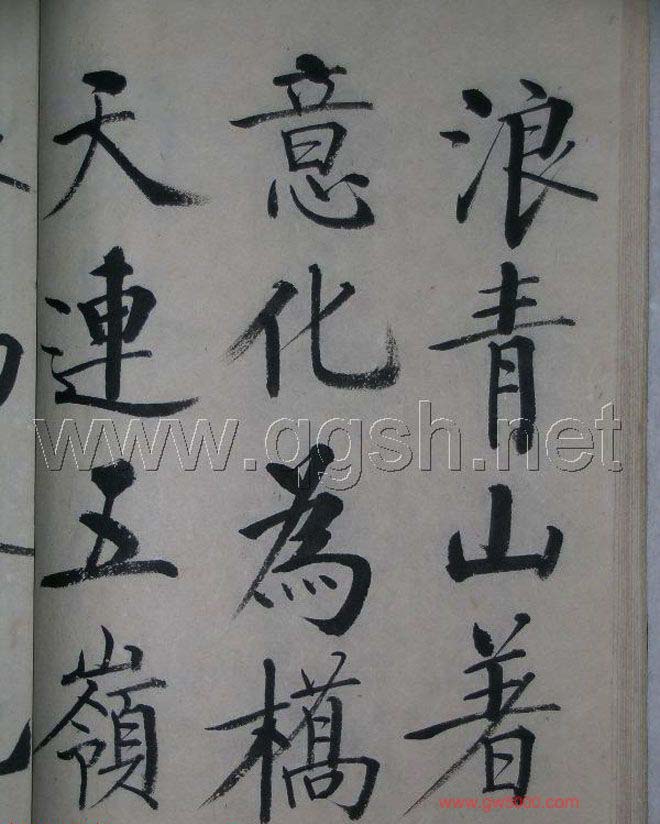 浪青山著
意化為橋
天連五嶺
www.qgsh.net
www.gw8000.com